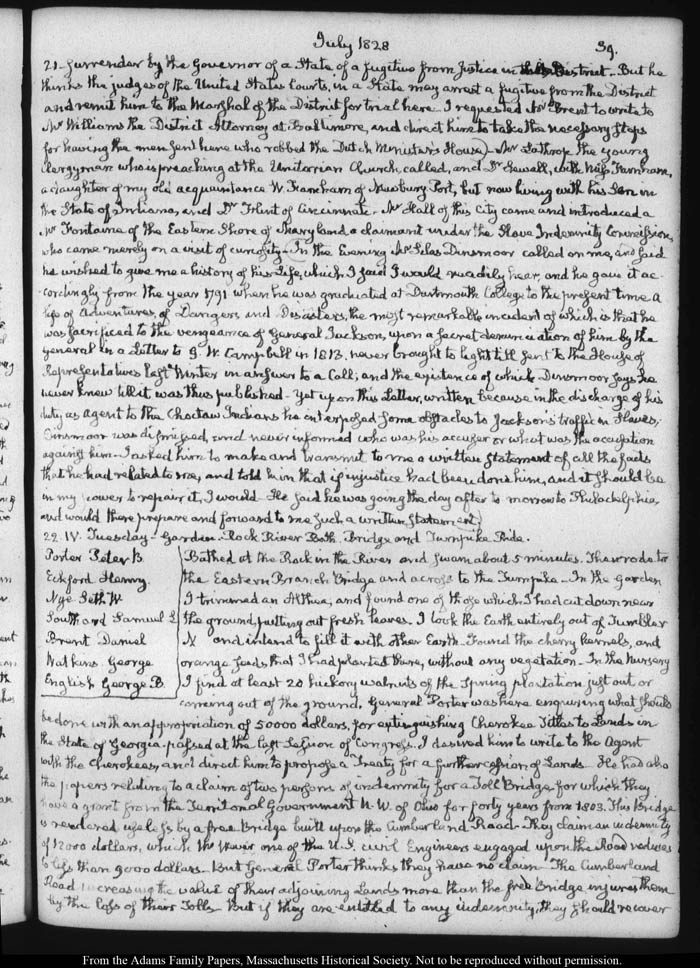 July 1828
39.
21. surrender by the Governor of a State of a fugitive from Justice in the District. But he
thinks the judges of the United States Courts, in a State may arrest a fugitive from the District
and remit him to the Marshal of the District for trial here. I requested Mr Brent to write to
Mr Williams the District Attorney at Baltimore, and direct him to take the necessary steps
for having the men sent here who robbed the Dutch Minister's House. Mr Lothrop the young
Clergyman who is preaching at the Unitarian Church, called, and Dr Sewall, with Miss Farnham,
a daughter of my old acquaintance W. Farnham of Newbury Port, but now living with his Son in
the State of Indiana, and Dr Flint of Cincinnati. Mr Hall of this City came and introduced a
Mr Fontaine of the Eastern Shore of Maryland a claimant under the Slave Indemnity Convention,
who came merely on a visit of curiosity. In the Evening Mr Silas Dinsmoor called on me, and said
he wished to give me a history of his Life, which I said I would readily hear, and he gave it ac-
-cordingly from the year 1791 when he was graduated at Dartmouth College to the present time a
life of Adventures, of Dangers and Disasters, the most remarkable incident of which is that he
was sacrificed to the vengeance of General Jackson, upon a secret denunciation of him by the
General in a Letter to G. W. Campbell in 1813. never brought to light till sent to the House of
Representatives last Winter in answer to a Call; and the existence of which Dinsmoor says he
never knew till it was thus published. Yet upon this Letter, written because in the discharge of his
duty as agent to the Choctaw Indians he interposed some obstacles to Jackson's traffic in Slaves,
Dinsmoor was dismissed, and never informed who was his accuser or what was the accusation
against him. I asked him to make and transmit to me a written statement of all the facts
that he had related to me, and told him that if injustice had been done him, and it should be
in my power to repair it, I would. He said he was going the day after to morrow to Philadelphia,
and would there prepare and forward to me such a written statement.
22. IV. Tuesday. Garden. Rock River Bath. Bridge and Turnpike Ride.
Porter Peter B.
Eckford Henry.
Nye Seth W.
Southard Samuel L
Brent Daniel
Watkins George
English George B.
Bathed at the Rock in the River and swam about 5 minutes. Then rode to
the Eastern Branch Bridge and across to the Turnpike. In the Garden
I trimmed an Althea, and found one of those which I had cut down near
the ground, putting out fresh leaves. I took the Earth entirely out of Tumbler
N and intend to fill it with other Earth. Found the cherry kernels, and
orange seeds that I had planted there, without any vegetation. In the Nursery
I find at least 20 hickory walnuts of the Spring plantation just out or
coming out of the ground. General Porter was here enquiring what should
be done with an appropriation of 50000 dollars, for extinguishing Cherokee Titles to Lands in
the State of Georgia. passed at the last Session of Congress. I desired him to write to the Agent
with the Cherokees, and direct him to propose a Treaty for a further cession of Lands. He had also
the papers relating to a claim of two persons of indemnity for a Toll Bridge, for which they
have a grant from the Territorial Government N. W. of Ohio for forty years from 1803. This Bridge
is rendered useless by a free Bridge built upon the Cumberland Road. They claim an indemnity
of 12000 dollars, which one of the U.S. civil Engineers engaged upon the Road reduces
to less than 9000 dollars. But General Porter thinks they have no claim. The Cumberland
Road increasing the value of their adjoining Lands more than the free Bridge injures them
by the loss of their Tolls. But if they are entitled to any indemnity, they should recover
From the Adams Family Papers, Massachusetts Historical Society. Not to be reproduced without permission.